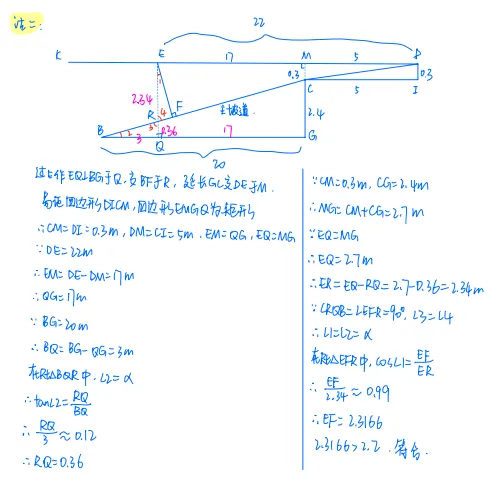 法二:
22
K
E
17
M
5
D
0.3
0.3
C
5
I
2.34
1
F
R
4
主坡道.
2.4
B
2
3
0.36
3
Q
17
G
20
过E作EQ⊥BG于Q,交BF于R,延长GC交DE于M.
易证四边形DICM,四边形EMGQ为矩形
∴CM=DI=0.3m, DM=CI=5m. EM=QG, EQ=MG
∵DE=22m
∴EM=DE-DM=17m
∴QG=17m
∵BG=20m
∴BQ=BG-QG=3m
在Rt△BQR中, ∠2=α
∴tan∠2=RQ/BQ
∴RQ/3≈0.12
∴RQ=0.36
∵CM=0.3m, CG=2.4m
∴MG=CM+CG=2.7m
∵EQ=MG
∴EQ=2.7m
∴ER=EQ-RQ=2.7-0.36=2.34m
∵∠RQB=∠EFR=90°, ∠3=∠4
∴∠1=∠2=α
在Rt△EFR中, cos∠1=EF/ER
∴EF/2.34≈0.99
∴EF=2.3166
2.3166>2.2.符合.